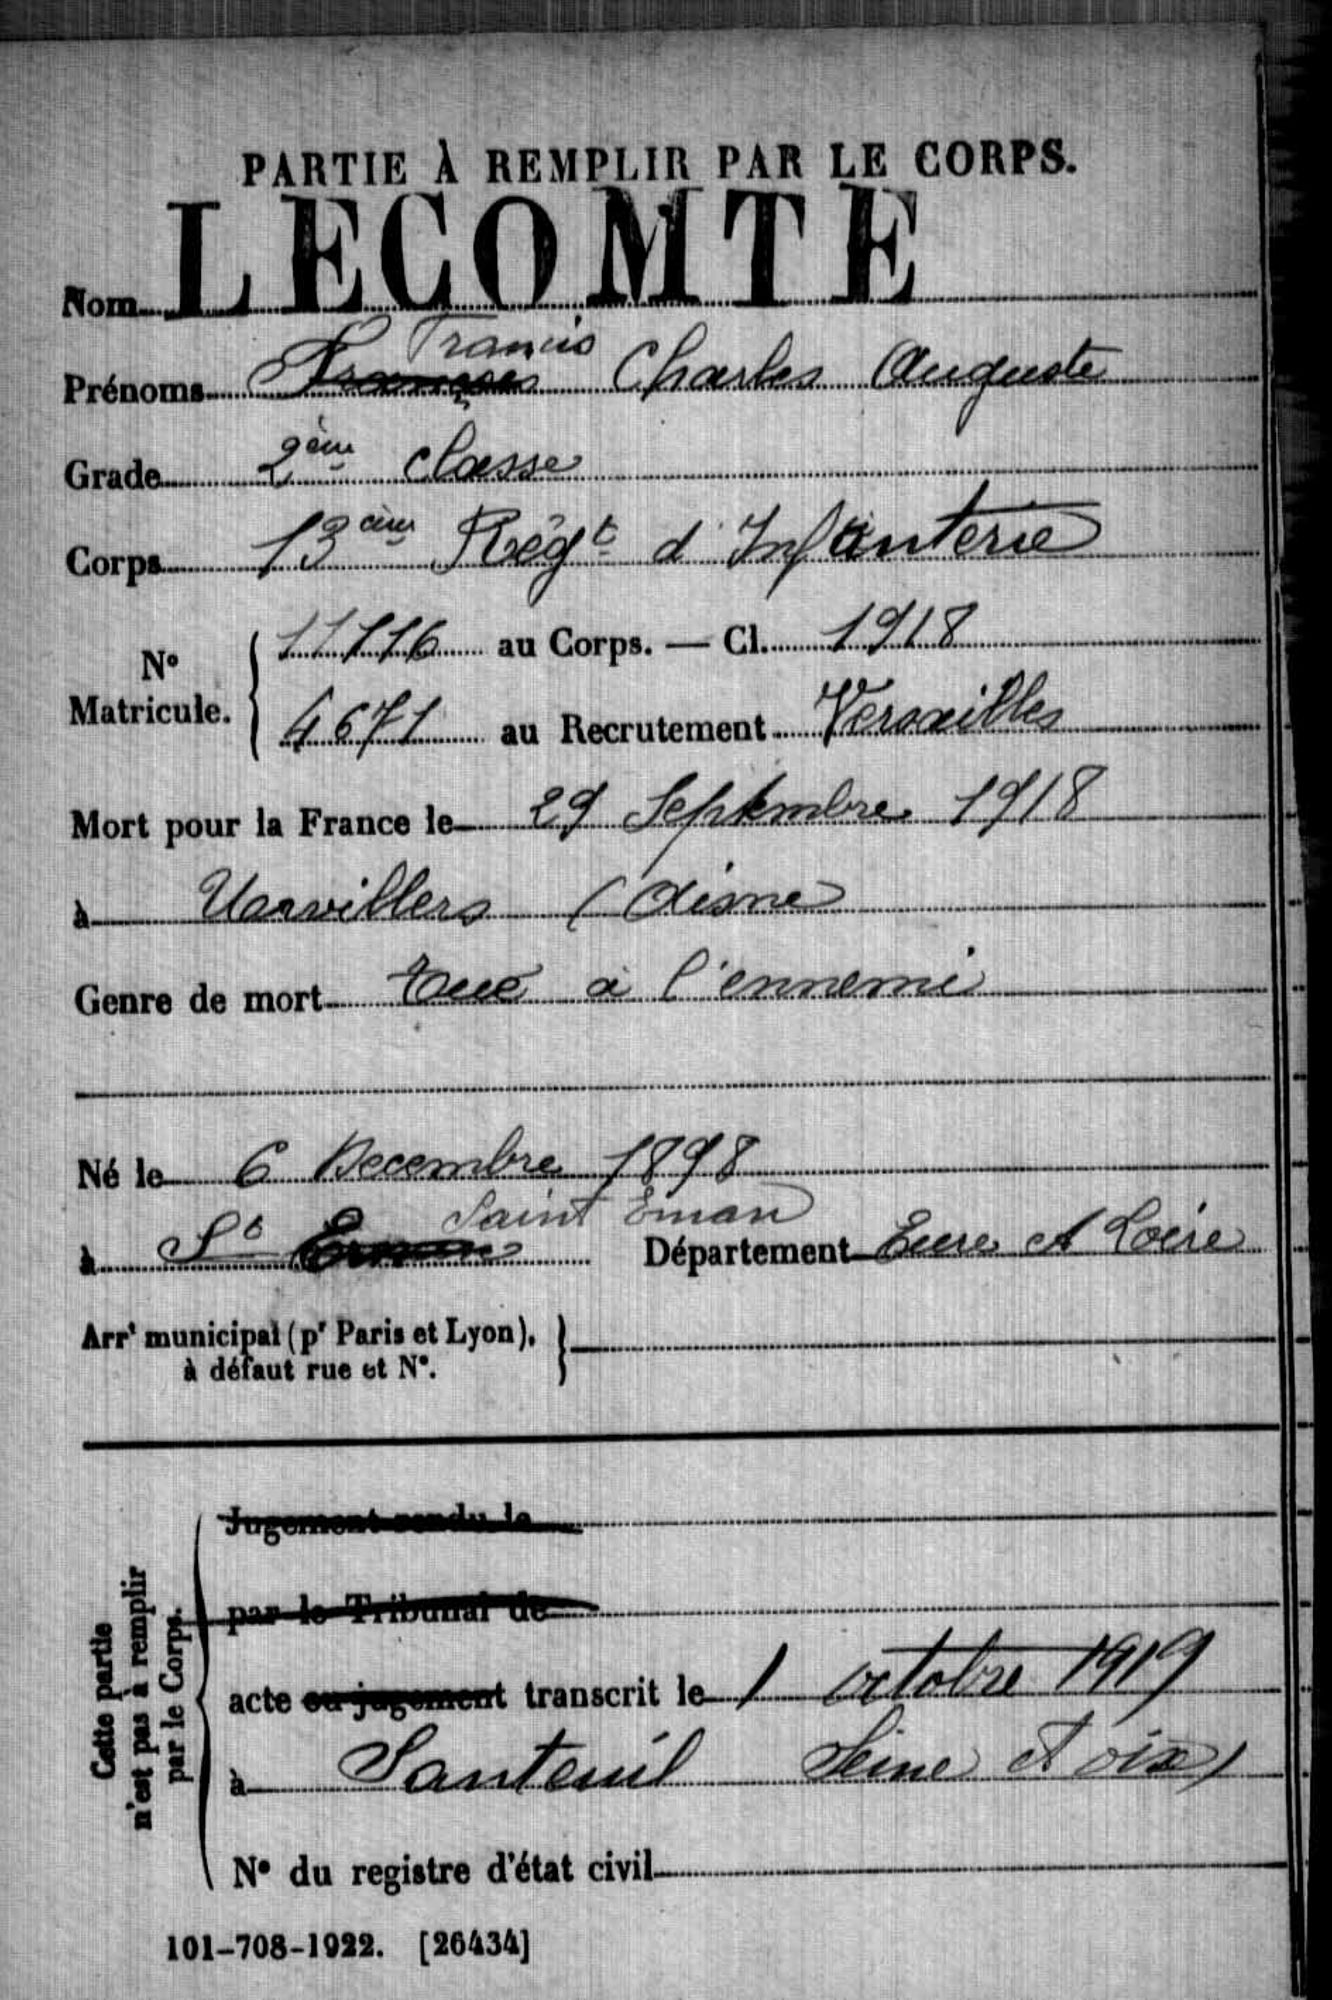 PARTIE À REMPLIR PAR LE CORPS.
Nom LECOMTE
Francis
Prénoms François Charles Auguste
Grade 2ème classe
Corps 13ème Régt d'Infanterie
N° Matricule. 11116 au Corps. — Cl. 1918
4671 au Recrutement Versailles
Mort pour la France le 29 Septembre 1918
à Urvillers (Aisne
Genre de mort Tué à l'ennemi
Né le 6 Decembre 1898
Saint Eman
à St Département Eure et Loire
Arrt municipal (pr Paris et Lyon),
à défaut rue et N°.
Cette partie
n'est pas à remplir
par le Corps.
Jugement rendu le
par le Tribunal de
acte ou jugement transcrit le 1 octobre 1919
à Santeuil Seine et Oise)
N° du registre d'état civil
101-708-1922. [26434]